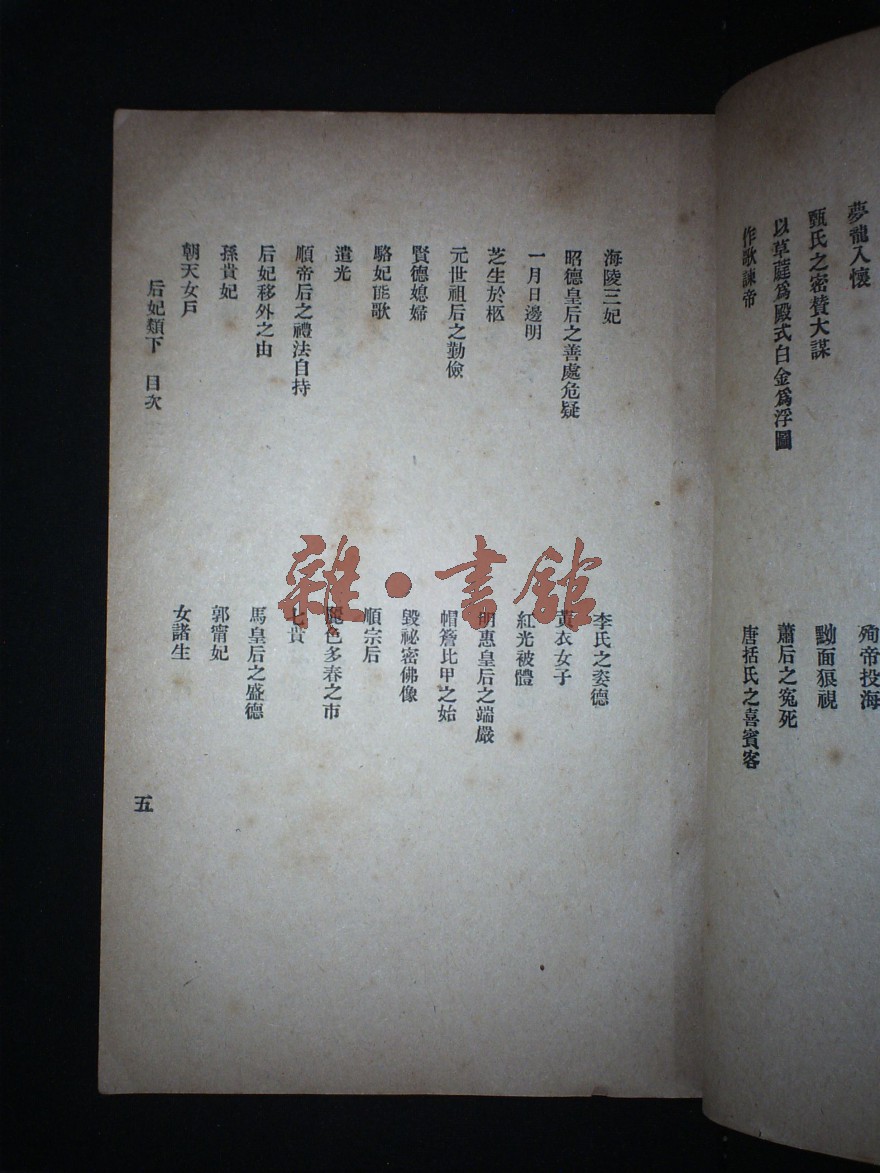 夢龍入懷
殉帝投海
甄氏之密贊大謀
黝面狠視
以草爲殿式白金爲浮圖
蕭后之冤死
作歌諫帝
唐括氏之喜賓客
海陵三妃
李氏之姿德
昭德皇后之善處危疑
黃衣女子
一月日邊明
紅光被體
芝生於柩
明惠皇后之端嚴
元世祖后之勤儉
帽簷比甲之始
賢德媳婦
毀祕密佛像
駱妃能歌
順宗后
遣光
色多春之市
順帝后之禮法自持
七貴
后妃移外之由
馬皇后之盛德
孫貴妃
郭甯妃
朝天女戸
女諸生
后妃類下 目次
五
雜·書館